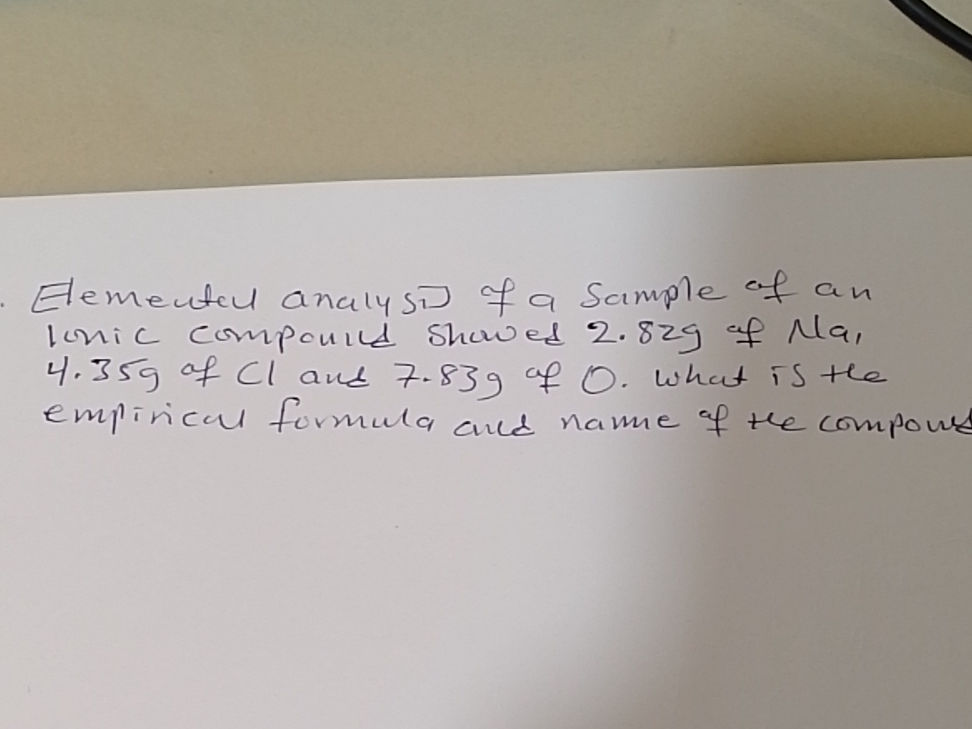 . Elemental analysis of a Sample of an
Ionic compound showed 2.82g of Na,
4.35g of Cl and 7.83g of O. What is the
empirical formula and name of the compound